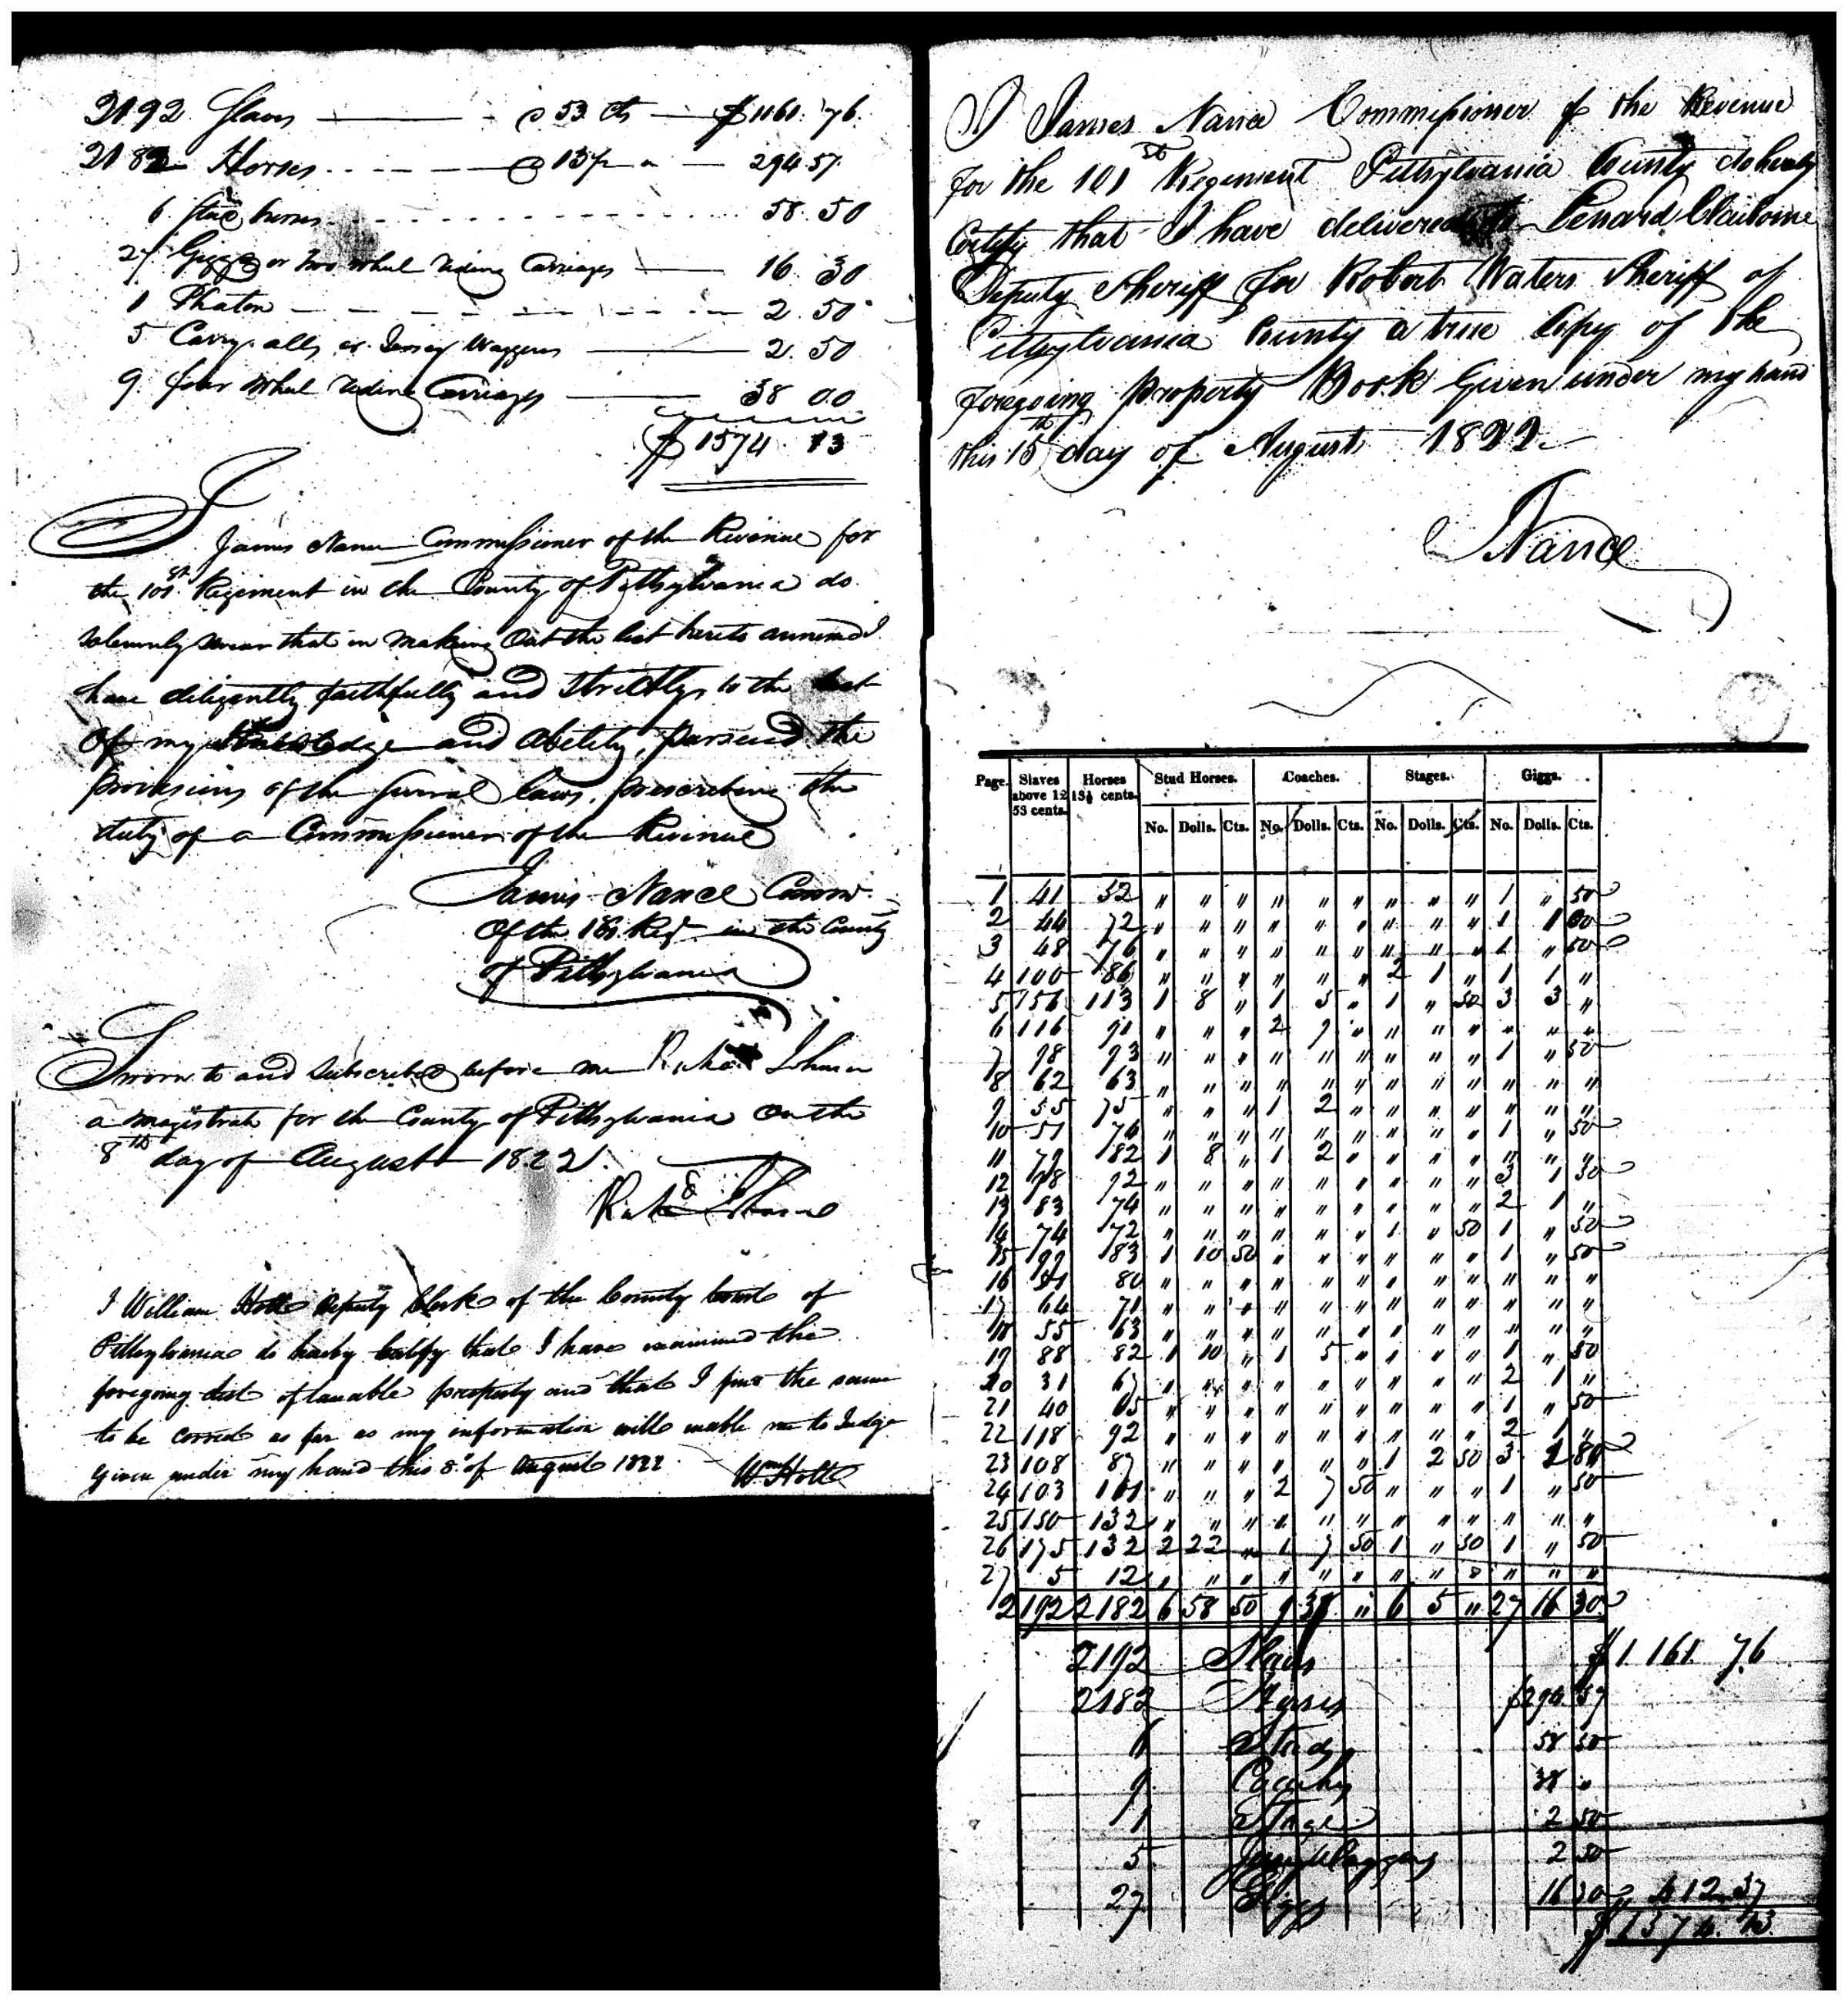 2192 Slaves — @ 53 cts — $1161.76.
2182 Horses - - - @ 13½ " — 294.57.
6 Stud horses - - - 58.50
27 Giggs or two wheel riding Carriages — 16.30
1 Phaton - - - 2.50
5 Carryalls or Jersey Waggons — 2.50
9 four wheel riding Carriages — 38 00
$1574.13
I James Nance Commissioner of the Revenue for
the 101st Regiment in the County of Pittsylvania do
solemnly swear that in making out the list hereto annexed I
have diligently faithfully and strictly, to the best
of my knowledge and ability, pursued the
provisions of the several laws, prescribing the
duty of a Commissioner of the Revenue
James Nance Comr.
of the 101 Regt in the County
of Pittsylvania
Sworn to and subscribed before me
a magistrate for the County of Pittsylvania on the
8th day of August 1822.
I William Holt deputy Clerk of the County Court of
Pittsylvania do hereby certify that I have examined the
foregoing list of taxable property and that I find the same
to be correct as far as my information will enable me to Judge
given under my hand this 8th of August 1822
Wm Holt
I James Nance Commissioner of the Revenue
for the 101st Regiment Pittsylvania County do hereby
Certify that I have delivered to Lenard Claiborne
Deputy Sheriff for Robert Waters Sheriff of
Pittsylvania County a true Copy of the
foregoing property Book Given under my hand
this 15th day of August 1822
Nance
Page. Slaves above 12 53 cents. Horses 13½ cents. Stud Horses. Coaches. Stages. Giggs.
No. Dolls. Cts. No. Dolls. Cts. No. Dolls. Cts. No. Dolls. Cts.
1 41 52 " " " " " " " " " 1 " 50
2 44 72 " " " " " " " " " 1 1 00
3 48 76 " " " " " " " " " 1 " 50
4 100 86 " " " " " " 2 1 " 1 1 "
5 156 113 1 8 " 1 5 " 1 " 50 3 3 "
6 116 91 " " " 2 9 " " " " " " "
7 98 93 " " " " " " " " " 1 " 50
8 62 63 " " " " " " " " " " " "
9 55 75 " " " 1 2 " " " " " " "
10 51 76 " " " " " " " " " 1 " 50
11 79 82 1 8 " 1 2 " " " " " " "
12 98 92 " " " " " " " " " 3 1 50
13 83 74 " " " " " " " " " 2 1 "
14 74 72 " " " " " " 1 " 50 1 " 50
15 99 83 1 10 50 " " " " " " 1 " 50
16 51 80 " " " " " " " " " " " "
17 64 71 " " " " " " " " " " " "
18 55 63 " " " " " " " " " " " "
19 88 82 1 10 " 1 5 " 1 " " 1 " 50
20 31 67 " " " " " " " " " 2 1 "
21 40 65 " " " " " " " " " 1 " 50
22 118 92 " " " " " " " " " 2 1 "
23 108 87 " " " " " " 1 2 50 3 2 80
24 103 101 " " " 2 7 50 " " " 1 " 50
25 150 132 " " " " " " " " " " " "
26 175 132 2 22 " 1 7 50 1 " 50 1 " 50
27 5 12 " " " " " " " " " " " "
2192 2182 6 58 50 9 38 " 6 5 " 27 16 30
2192 Slaves $1161.76
2182 Horses $294 57
6 Studs 58 50
9 Coaches 38 "
1 Stage 2 50
5 Jersey Waggons 2 50
27 Giggs 16 30 412.37
$1574.13